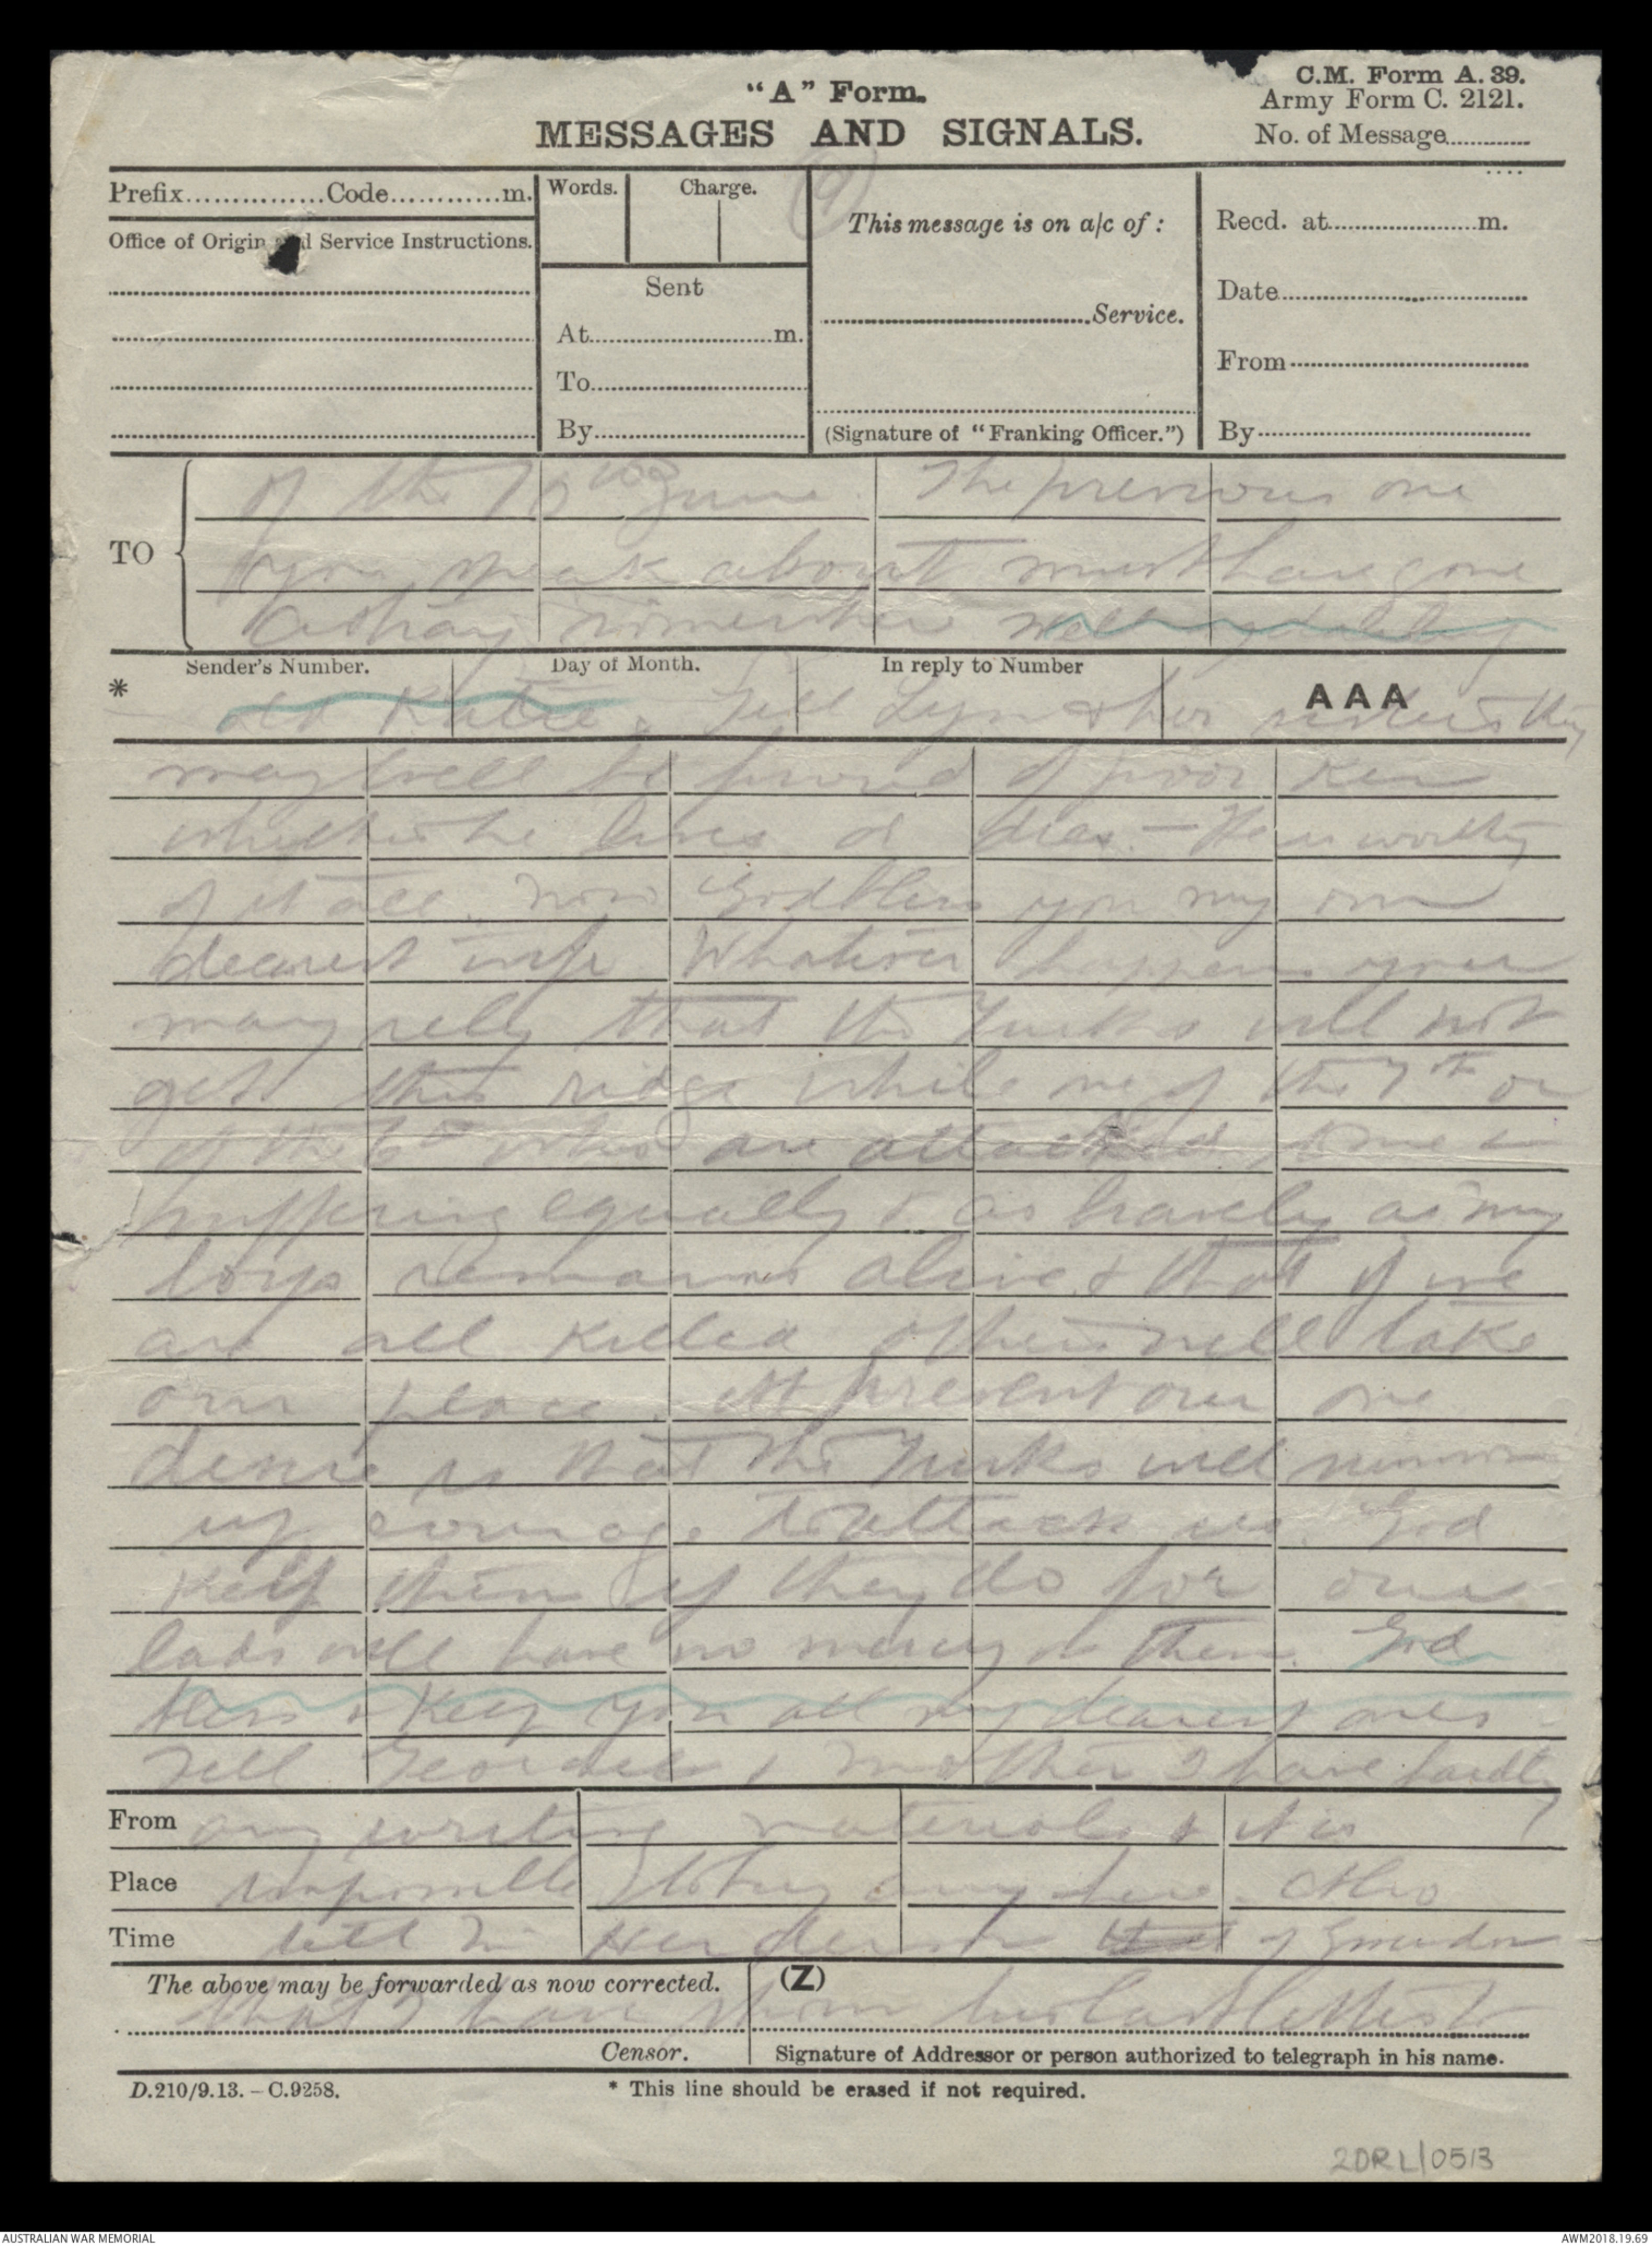 "A" Form.
MESSAGES AND SIGNALS.
C.M. Form A. 39.
Army Form C. 2121.
No. of Message
(9)
Prefix Code m.
Words. Charge.
This message is on a/c of :
Recd. at m.
Office of Origin and Service Instructions.
Sent
Date
Service.
At m.
From
To
By
(Signature of "Franking Officer.")
By
of the June. The previous one
TO
you speak about must have gone
astray somewhere
Sender's Number. Day of Month. In reply to Number
* AAA
old Katie. Tell Lyn & her sisters they
may well be proud of poor Ken
whether he lives or dies. – He is worthy
of it all. Now God bless you my own
dearest wife Whatever happens you
may rely that the Turks will not
get this ridge while one of the 7th or
of the 6th who are attached to me &
suffering equally & as bravely as my
boys remains alive & that if we
are all killed others will take
our place. At present our one
desire is that the Turks will
up courage to attack us. God
help them if they do for our
lads will have no mercy on them. God
bless & keep you all my dearest ones
Tell Geordie & mother I have hardly
From any writing materials & it is
Place impossible to buy any here. Also
Time tell Henderson of
that I have his last letter
The above may be forwarded as now corrected. (Z)
Censor. Signature of Addressor or person authorized to telegraph in his name.
D.210/9.13. – C.9258. * This line should be erased if not required.
2DRL/0513
AUSTRALIAN WAR MEMORIAL AWM2018.19.69